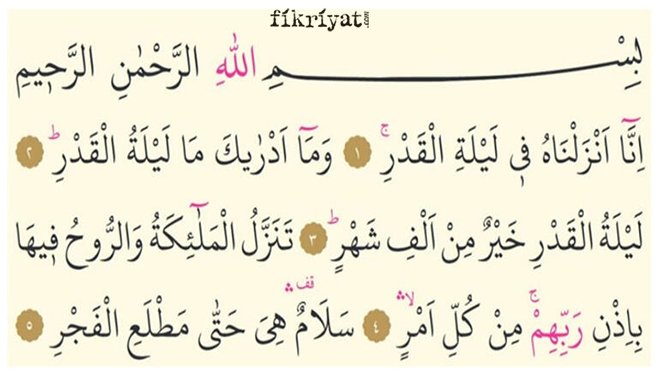 fikriyat.com
بِسْمِ اللّٰهِ الرَّحْمٰنِ الرَّح۪يمِ
اِنَّٓا اَنْزَلْنَاهُ ف۪ي لَيْلَةِ الْقَدْرِۚ ﴿١﴾ وَمَٓا اَدْرٰيكَ مَا لَيْلَةُ الْقَدْرِۜ ﴿٢﴾
لَيْلَةُ الْقَدْرِ خَيْرٌ مِنْ اَلْفِ شَهْرٍۜ ﴿٣﴾ تَنَزَّلُ الْمَلٰٓئِكَةُ وَالرُّوحُ ف۪يهَا
بِاِذْنِ رَبِّهِمْۚ مِنْ كُلِّ اَمْرٍۙۛ ﴿٤﴾ سَلَامٌ۠ۛ هِيَ حَتّٰى مَطْلَعِ الْفَجْرِ ﴿٥﴾